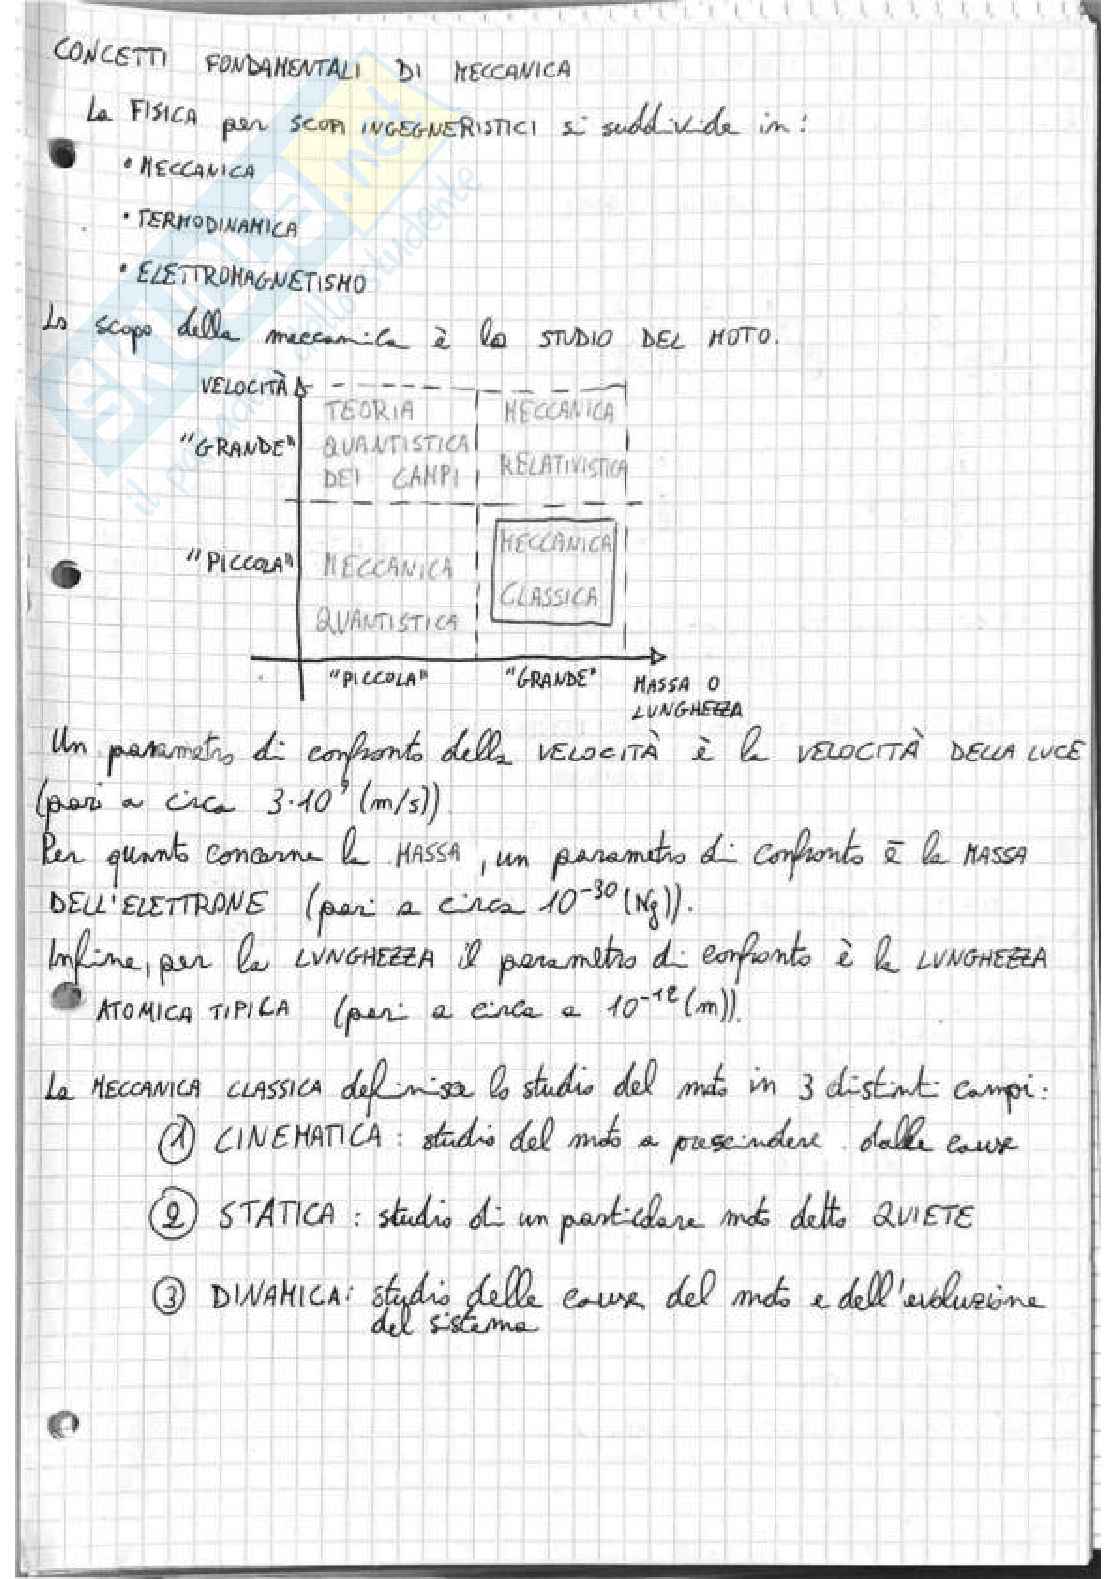 CONCETTI FONDAMENTALI DI MECCANICA
La FISICA per SCOPI INGEGNERISTICI si suddivide in:
• MECCANICA
• TERMODINAMICA
• ELETTROMAGNETISMO
Lo scopo della meccanica è lo STUDIO DEL MOTO.
VELOCITÀ
"GRANDE"
TEORIA QUANTISTICA DEI CAMPI
MECCANICA RELATIVISTICA
"PICCOLA"
MECCANICA QUANTISTICA
MECCANICA CLASSICA
"PICCOLA" "GRANDE" MASSA O
LUNGHEZZA
Un parametro di confronto della VELOCITÀ è la VELOCITÀ DELLA LUCE
(pari a circa 3·10 (m/s))
Per quanto concerne la MASSA, un parametro di confronto è la MASSA
DELL'ELETTRONE (pari a circa 10⁻³⁰ (Kg)).
Infine, per la LUNGHEZZA il parametro di confronto è la LUNGHEZZA
ATOMICA TIPICA (pari a circa a 10⁻¹² (m)).
La MECCANICA CLASSICA definisce lo studio del moto in 3 distinti campi:
① CINEMATICA: studio del moto a prescindere dalle cause
② STATICA: studio di un particolare moto detto QUIETE
③ DINAMICA: studio delle cause del moto e dell'evoluzione
del sistema
SKUOLA.net